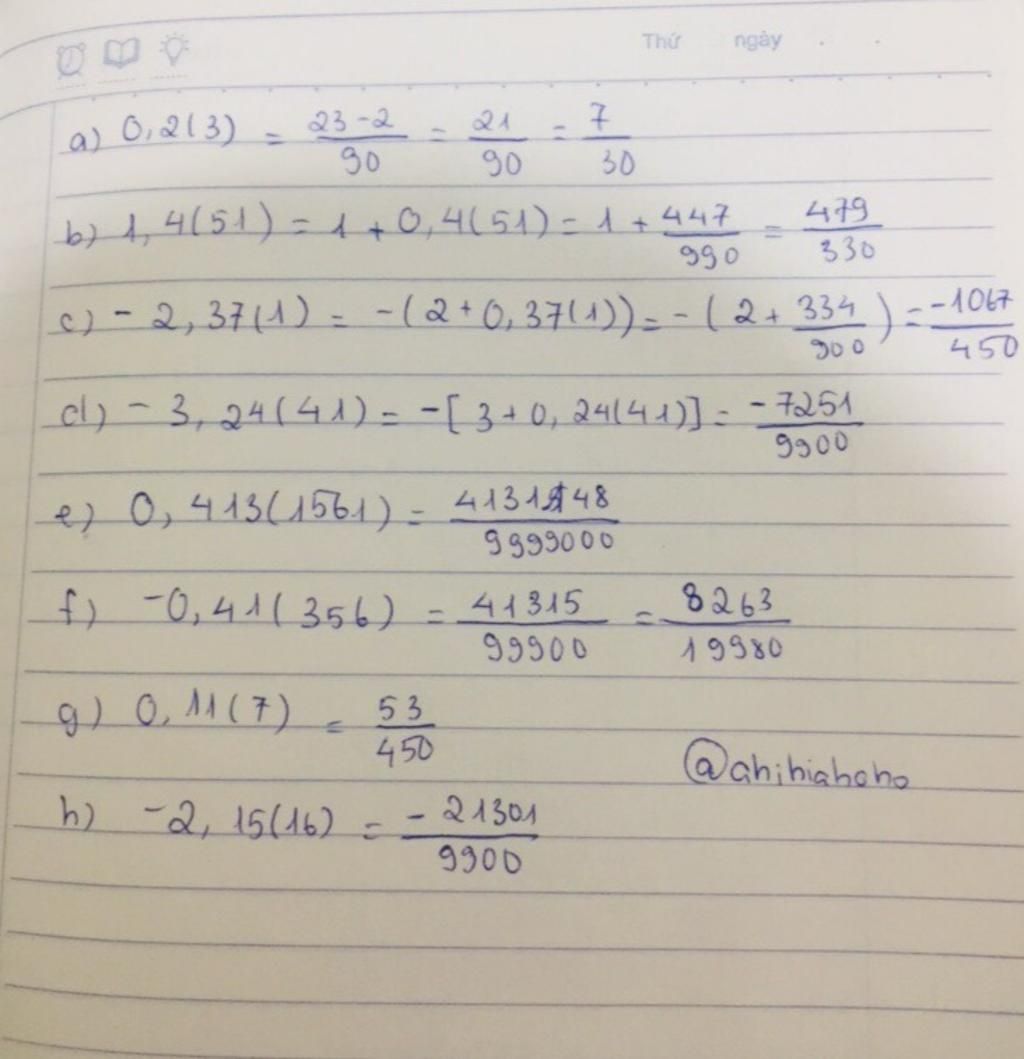 Thứ ngày . .
a) 0,2(3) = \frac{23-2}{90} = \frac{21}{90} = \frac{7}{30}
b) 1,4(51) = 1 + 0,4(51) = 1 + \frac{447}{990} = \frac{479}{330}
c) - 2,37(1) = -(2+0,37(1)) = - ( 2 + \frac{334}{900} ) = \frac{-1067}{450}
d) - 3, 24(41) = -[ 3 + 0, 24(41)] = \frac{-7251}{9900}
e) 0, 413(1561) =
f) -0,41(356) = \frac{41315}{99900} = \frac{8263}{19980}
g) 0,11(7) = \frac{53}{450}
@ahihiahoho
h) -2, 15(16) = \frac{-21301}{9900}